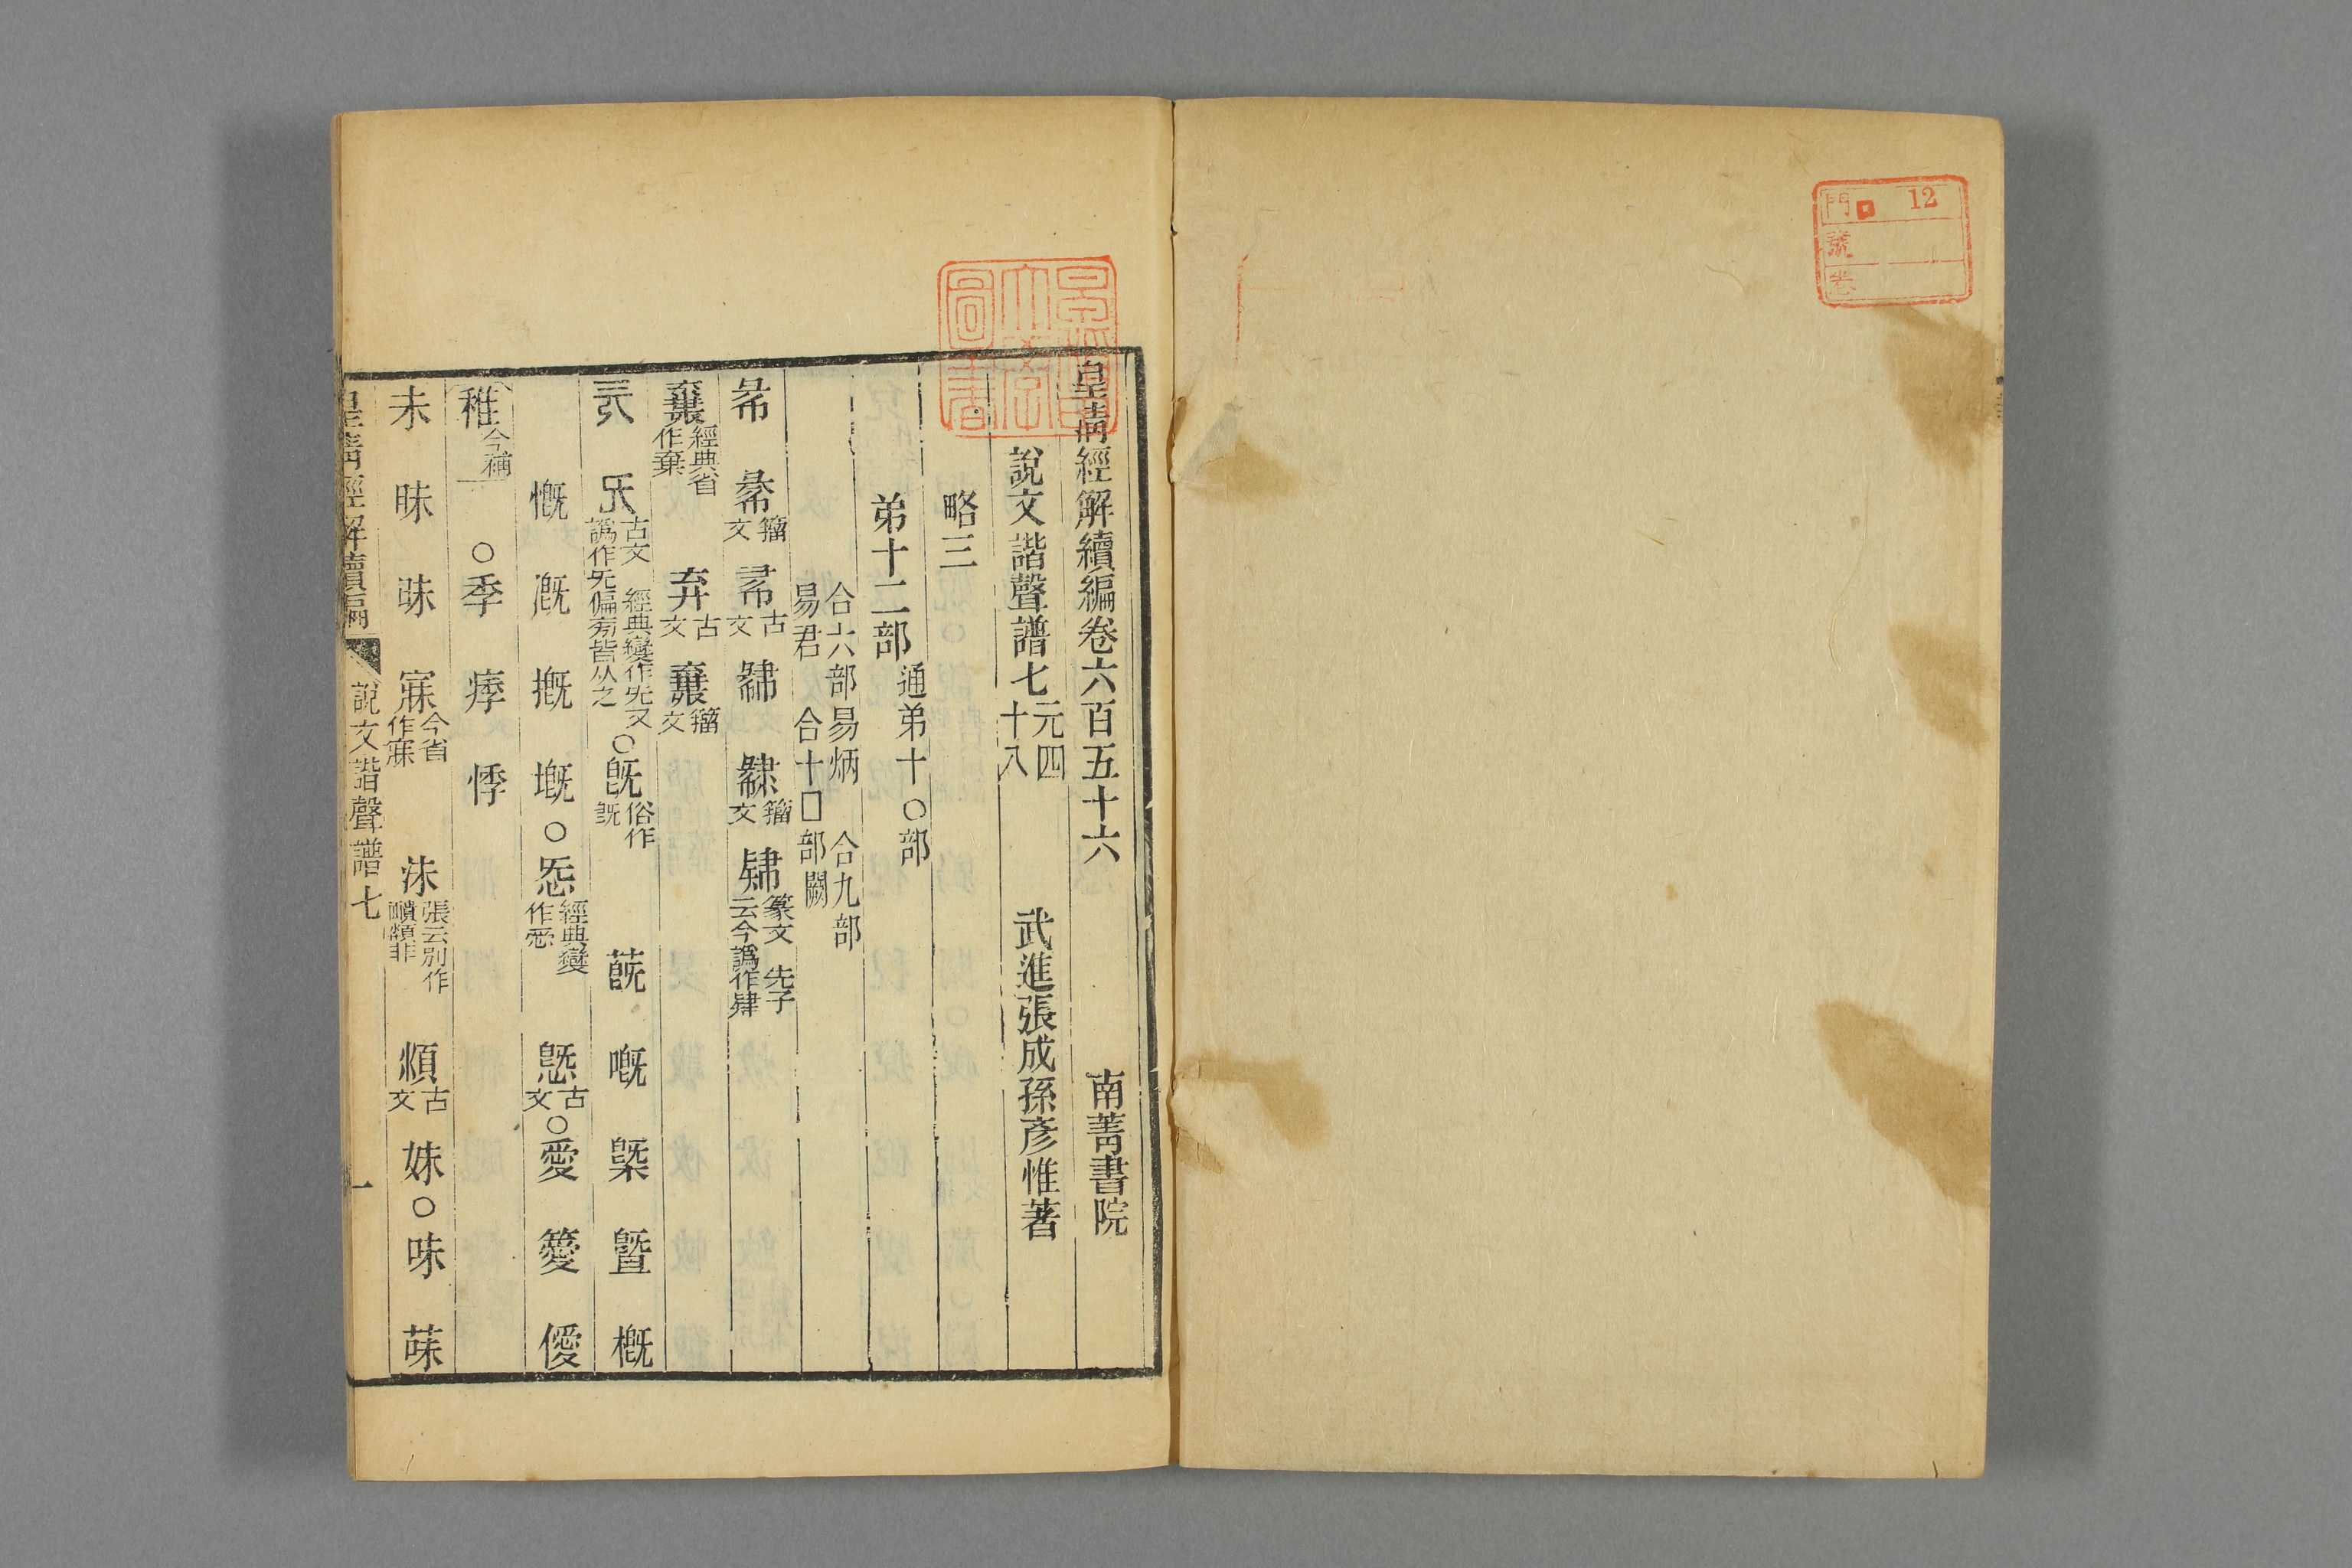 門 12
號
卷
皇清經解續編卷六百五十六 南菁書院
說文諧聲譜七 元四十八 武進張成孫彥惟著
略三
弟十二部 通弟十〇部
合六部易炳 合九部
易君 合十□部闕
㣇 籒文 古文 籒文 篆文 先子云今譌作肄
經典省作棄 弃 古文 籒文
古文 經典變作旡又譌作旡偏旁皆从之〇旣 俗作既 蔇 嘅 槩 曁 概
慨 漑 摡 墍〇㤅 經典變作愛 古文〇愛 薆 僾
稚 今補 〇季 痵 悸
未 昧 眛 寐 今省作寐 沬 張云別作靧頮非 湏 古文 妹〇味 菋
皇清經解續編 說文諧聲譜七 一